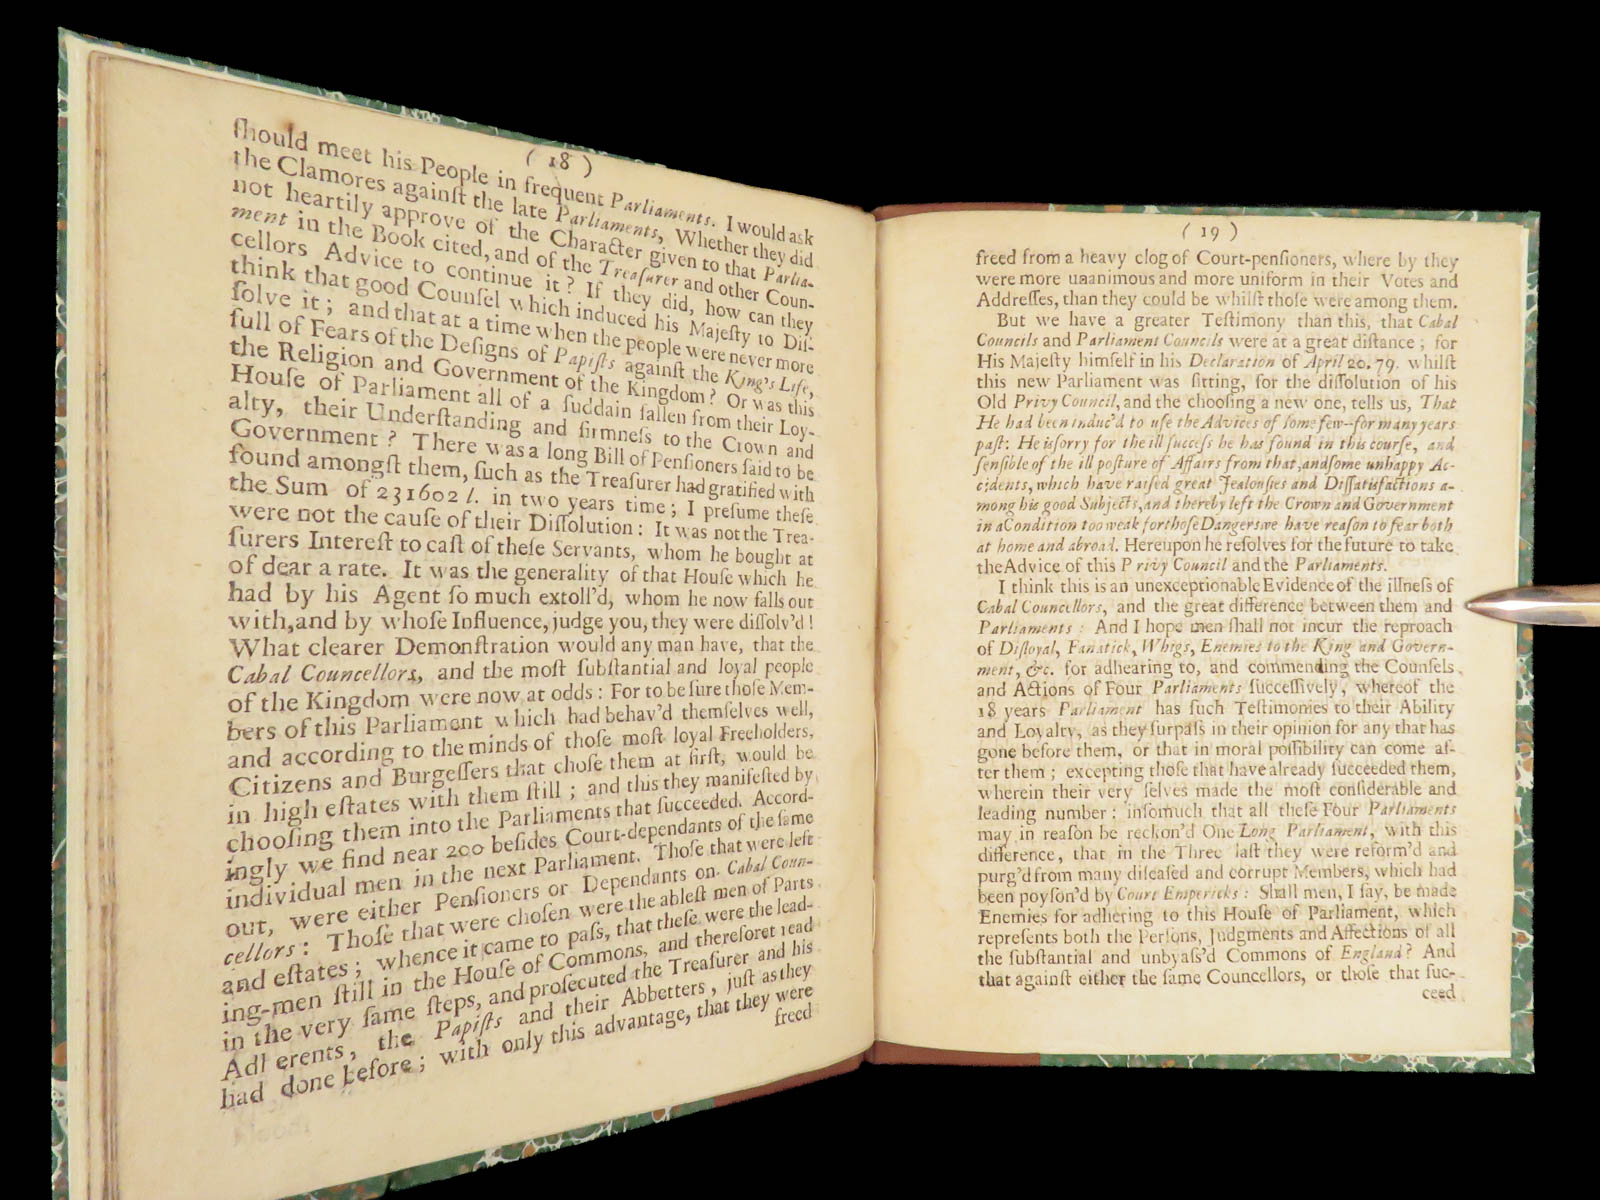 ( 18 )
ſhould meet his People in frequent Parliaments. I would ask
the Clamores againſt the late Parliaments, Whether they did
not heartily approve of the Character given to that Parlia-
ment in the Book cited, and of the Treaſurer and other Coun-
cellors Advice to continue it? If they did, how can they
think that good Counſel which induced his Majeſty to Diſ-
ſolve it; and that at a time when the people were never more
full of Fears of the Deſigns of Papiſts againſt the King's Life,
the Religion and Government of the Kingdom? Or was this
Houſe of Parliament all of a ſuddain fallen from their Loy-
alty, their Underſtanding and firmneſs to the Crown and
Government? There was a long Bill of Penſioners ſaid to be
found amongſt them, ſuch as the Treaſurer had gratified with
the Sum of 231602 l. in two years time; I preſume theſe
were not the cauſe of their Diſſolution: It was not the Trea-
ſurers Intereſt to caſt of theſe Servants, whom he bought at
of dear a rate. It was the generality of that Houſe which he
had by his Agent ſo much extoll'd, whom he now falls out
with, and by whoſe Influence, judge you, they were diſſolv'd!
What clearer Demonſtration would any man have, that the
Cabal Councellors, and the moſt ſubſtantial and loyal people
of the Kingdom were now at odds: For to be ſure thoſe Mem-
bers of this Parliament which had behav'd themſelves well,
and according to the minds of thoſe moſt loyal Freeholders,
Citizens and Burgeſſers that choſe them at firſt, would be
in high eſtates with them ſtill; and this they manifeſted by
chooſing them into the Parliaments that ſucceeded. Accord-
ingly we find near 200 beſides Court-dependants of the ſame
individual men in the next Parliament. Thoſe that were left
out, were either Penſioners or Dependants on Cabal Coun-
cellors: Thoſe that were choſen were the ableſt men of Parts
and eſtates; whence it came to paſs, that theſe were the lead-
ing-men ſtill in the Houſe of Commons, and therefore tread
in the very ſame ſteps, and proſecuted the Treaſurer and his
Adherents, the Papiſts and their Abbetters, juſt as they
had done before; with only this advantage, that they were
freed
( 19 )
freed from a heavy clog of Court-penſioners, where by they
were more unanimous and more uniform in their Votes and
Addreſſes, than they could be whilſt thoſe were among them.
But we have a greater Teſtimony than this, that Cabal
Councils and Parliament Councils were at a great diſtance; for
His Majeſty himſelf in his Declaration of April 20. 79. whilſt
this new Parliament was ſitting, for the diſſolution of his
Old Privy Council, and the chooſing a new one, tells us, That
He had been induc'd to uſe the Advices of ſome few--for many years
paſt: He is ſorry for the ill ſucceſs he has found in this courſe, and
ſenſible of the ill poſture of Affairs from that, and ſome unhappy Ac-
cidents, which have raiſed great Jealouſies and Diſſatisfactions a-
mong his good Subjects, and thereby left the Crown and Government
in a Condition too weak for thoſe Dangers we have reaſon to fear both
at home and abroad. Hereupon he reſolves for the future to take
the Advice of this Privy Council and the Parliaments.
I think this is an unexceptionable Evidence of the illneſs of
Cabal Councellors, and the great difference between them and
Parliaments: And I hope men ſhall not incur the reproach
of Diſloyal, Fanatick, Whigs, Enemies to the King and Govern-
ment, &c. for adhearing to, and commending the Counſels
and Actions of Four Parliaments ſucceſſively, whereof the
18 years Parliament has ſuch Teſtimonies to their Ability
and Loyalty, as they ſurpaſs in their opinion for any that has
gone before them, or that in moral poſſibility can come af-
ter them; excepting thoſe that have already ſucceeded them,
wherein their very ſelves made the moſt conſiderable and
leading number: inſomuch that all theſe Four Parliaments
may in reaſon be reckon'd One Long Parliament, with this
difference, that in the Three laſt they were reform'd and
purg'd from many diſeaſed and corrupt Members, which had
been poyſon'd by Court Empericks: Shall men, I ſay, be made
Enemies for adhering to this Houſe of Parliament, which
repreſents both the Perſons, Judgments and Affections of all
the ſubſtantial and unbyaſs'd Commons of England? And
that againſt either the ſame Councellors, or thoſe that ſuc-
ceed